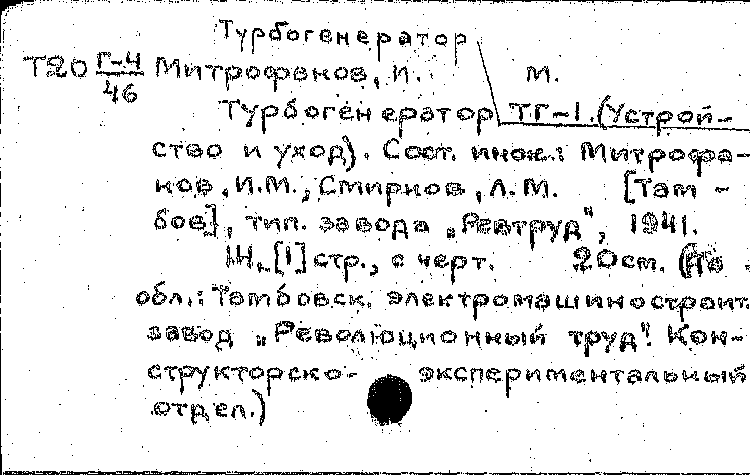 Турбогенератор
Т20 Г-4/46 Митрофанов, И. М.
Турбогенератор ТГ-1. (Устрой-
ство и уход). Сост. инж.: Митрофа-
нов, И.М., Смирнов, Л.М. [Там-
бов], тип. завода „Ревтруд", 1941.
[1] стр., с черт. 20 см. (На
обл.: Тамбовск. электромашиностроит.
завод „Революционный труд". Кон-
структорско-экспериментальный
отдел.)